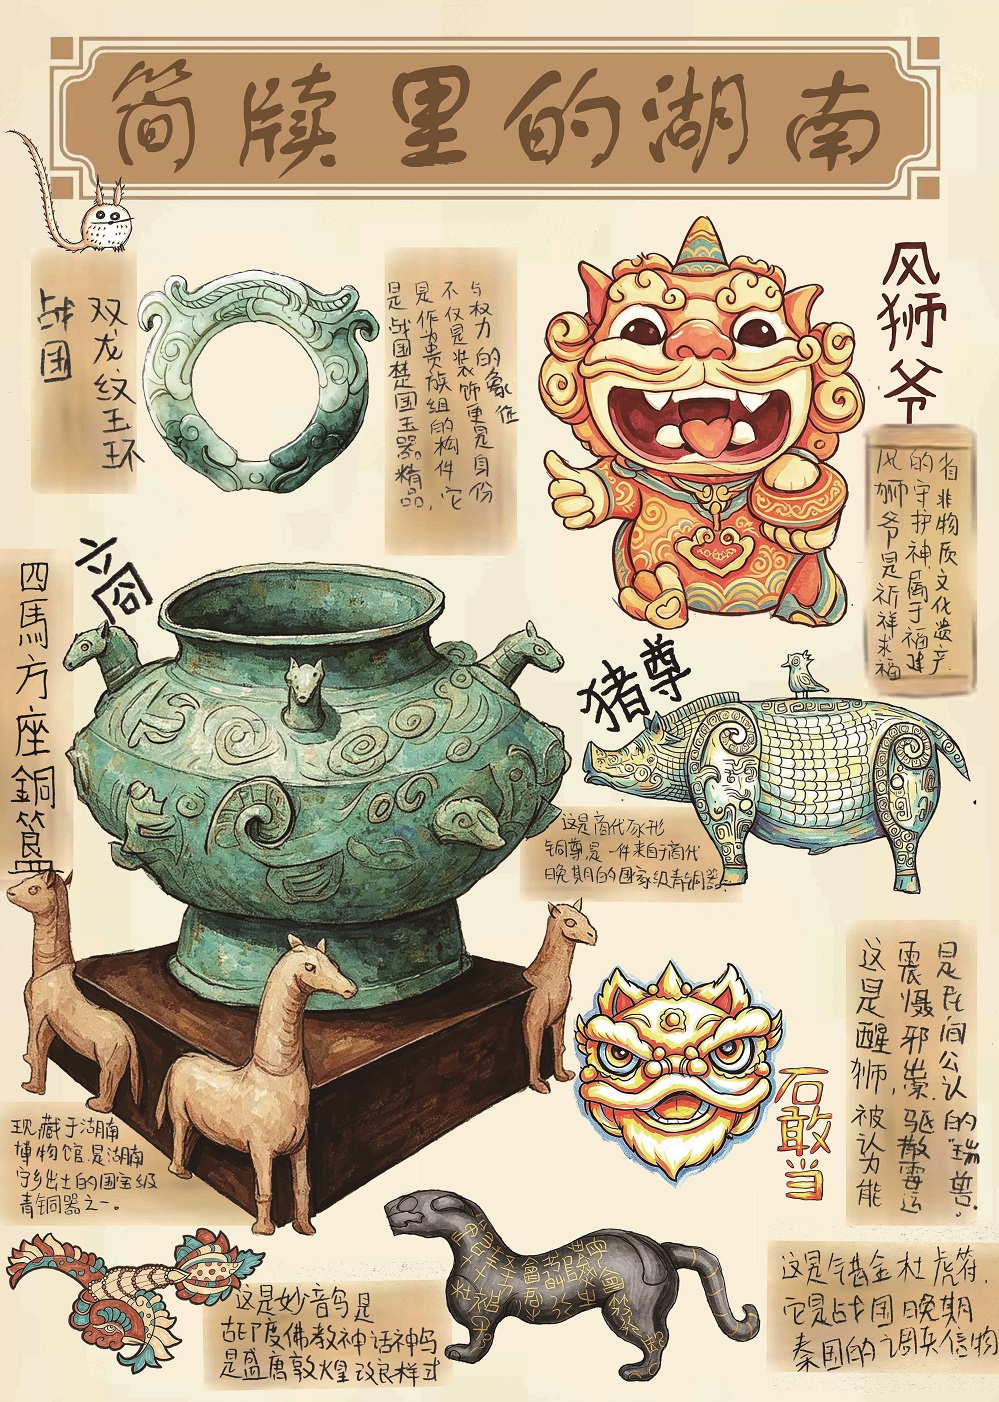 简牍里的湖南
双龙纹玉环
战国
与权力的象征
不仅是装饰更是身份
是作为贵族组的构件它
是战国楚国玉器精品,
风狮爷
省非物质文化遗产
的守护神属于福建
风狮爷是祈祥求福
四馬方座銅簋
商
猪尊
这是商代豕形
铜尊是一件来自于商代
晚期的国家级青铜器
是民间公认的“瑞兽”.
震慑邪祟,驱散霉运
这是醒狮被认为能
石敢当
现藏于湖南
博物馆是湖南
宁乡出土的国宝级
青铜器之一。
这是妙音鸟是
古印度佛教神话神鸟
是盛唐敦煌改良样式
这是错金杜虎符.
它是战国晚期
秦国的调兵信物